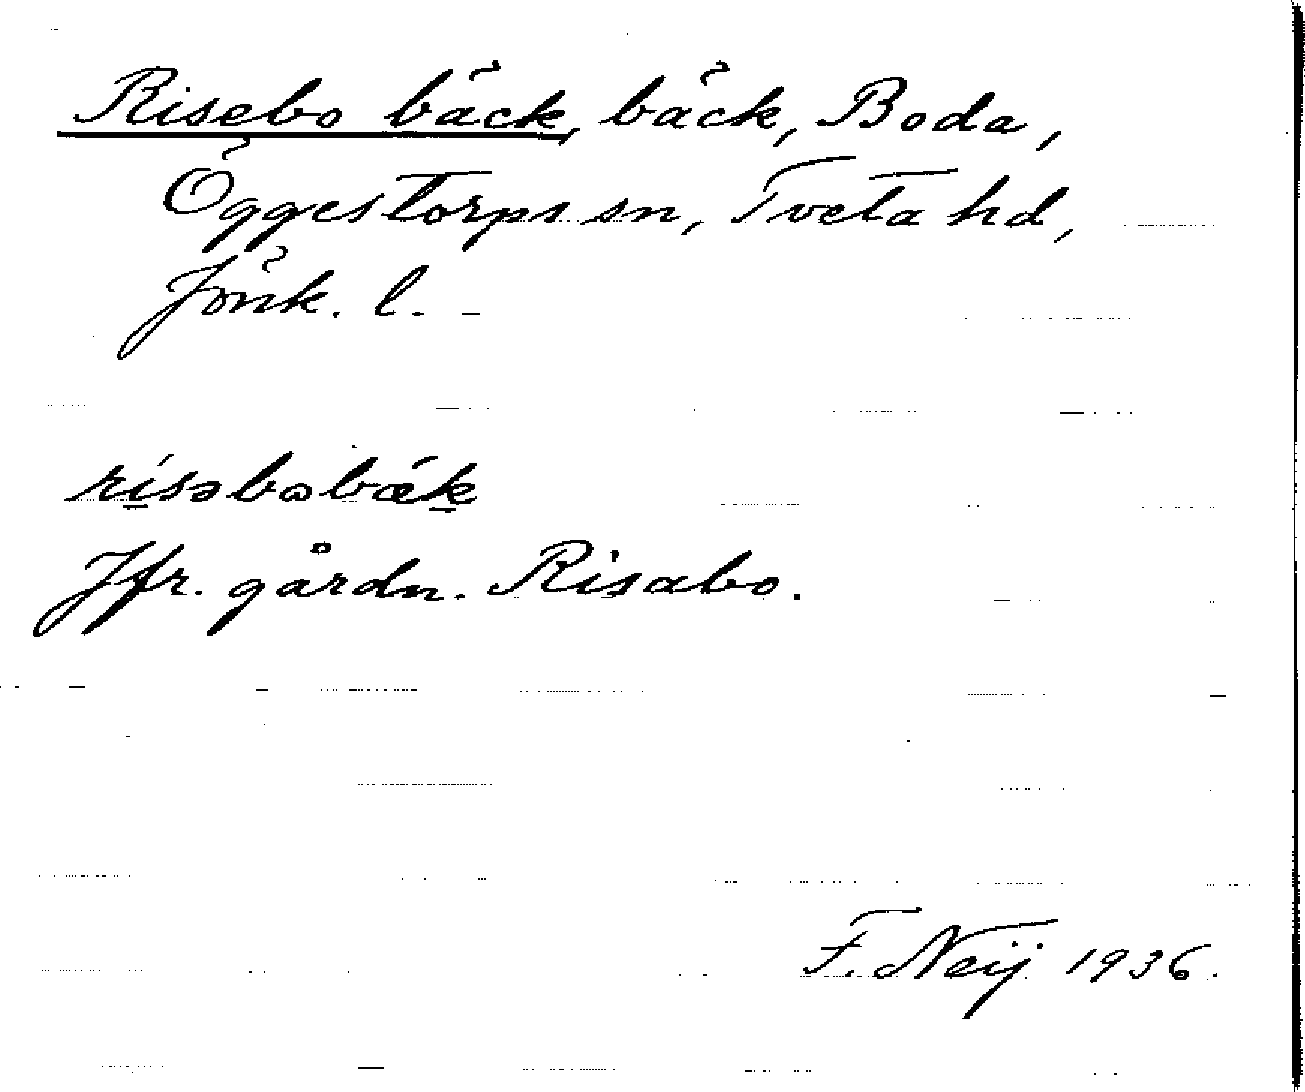 Risebo bäck, bäck, Boda,
Öggestorps sn, Tveta hd,
Jönk. l.
rísəbωbǽk
Jfr. gårdn. Risabo.
F. Neij 1936.